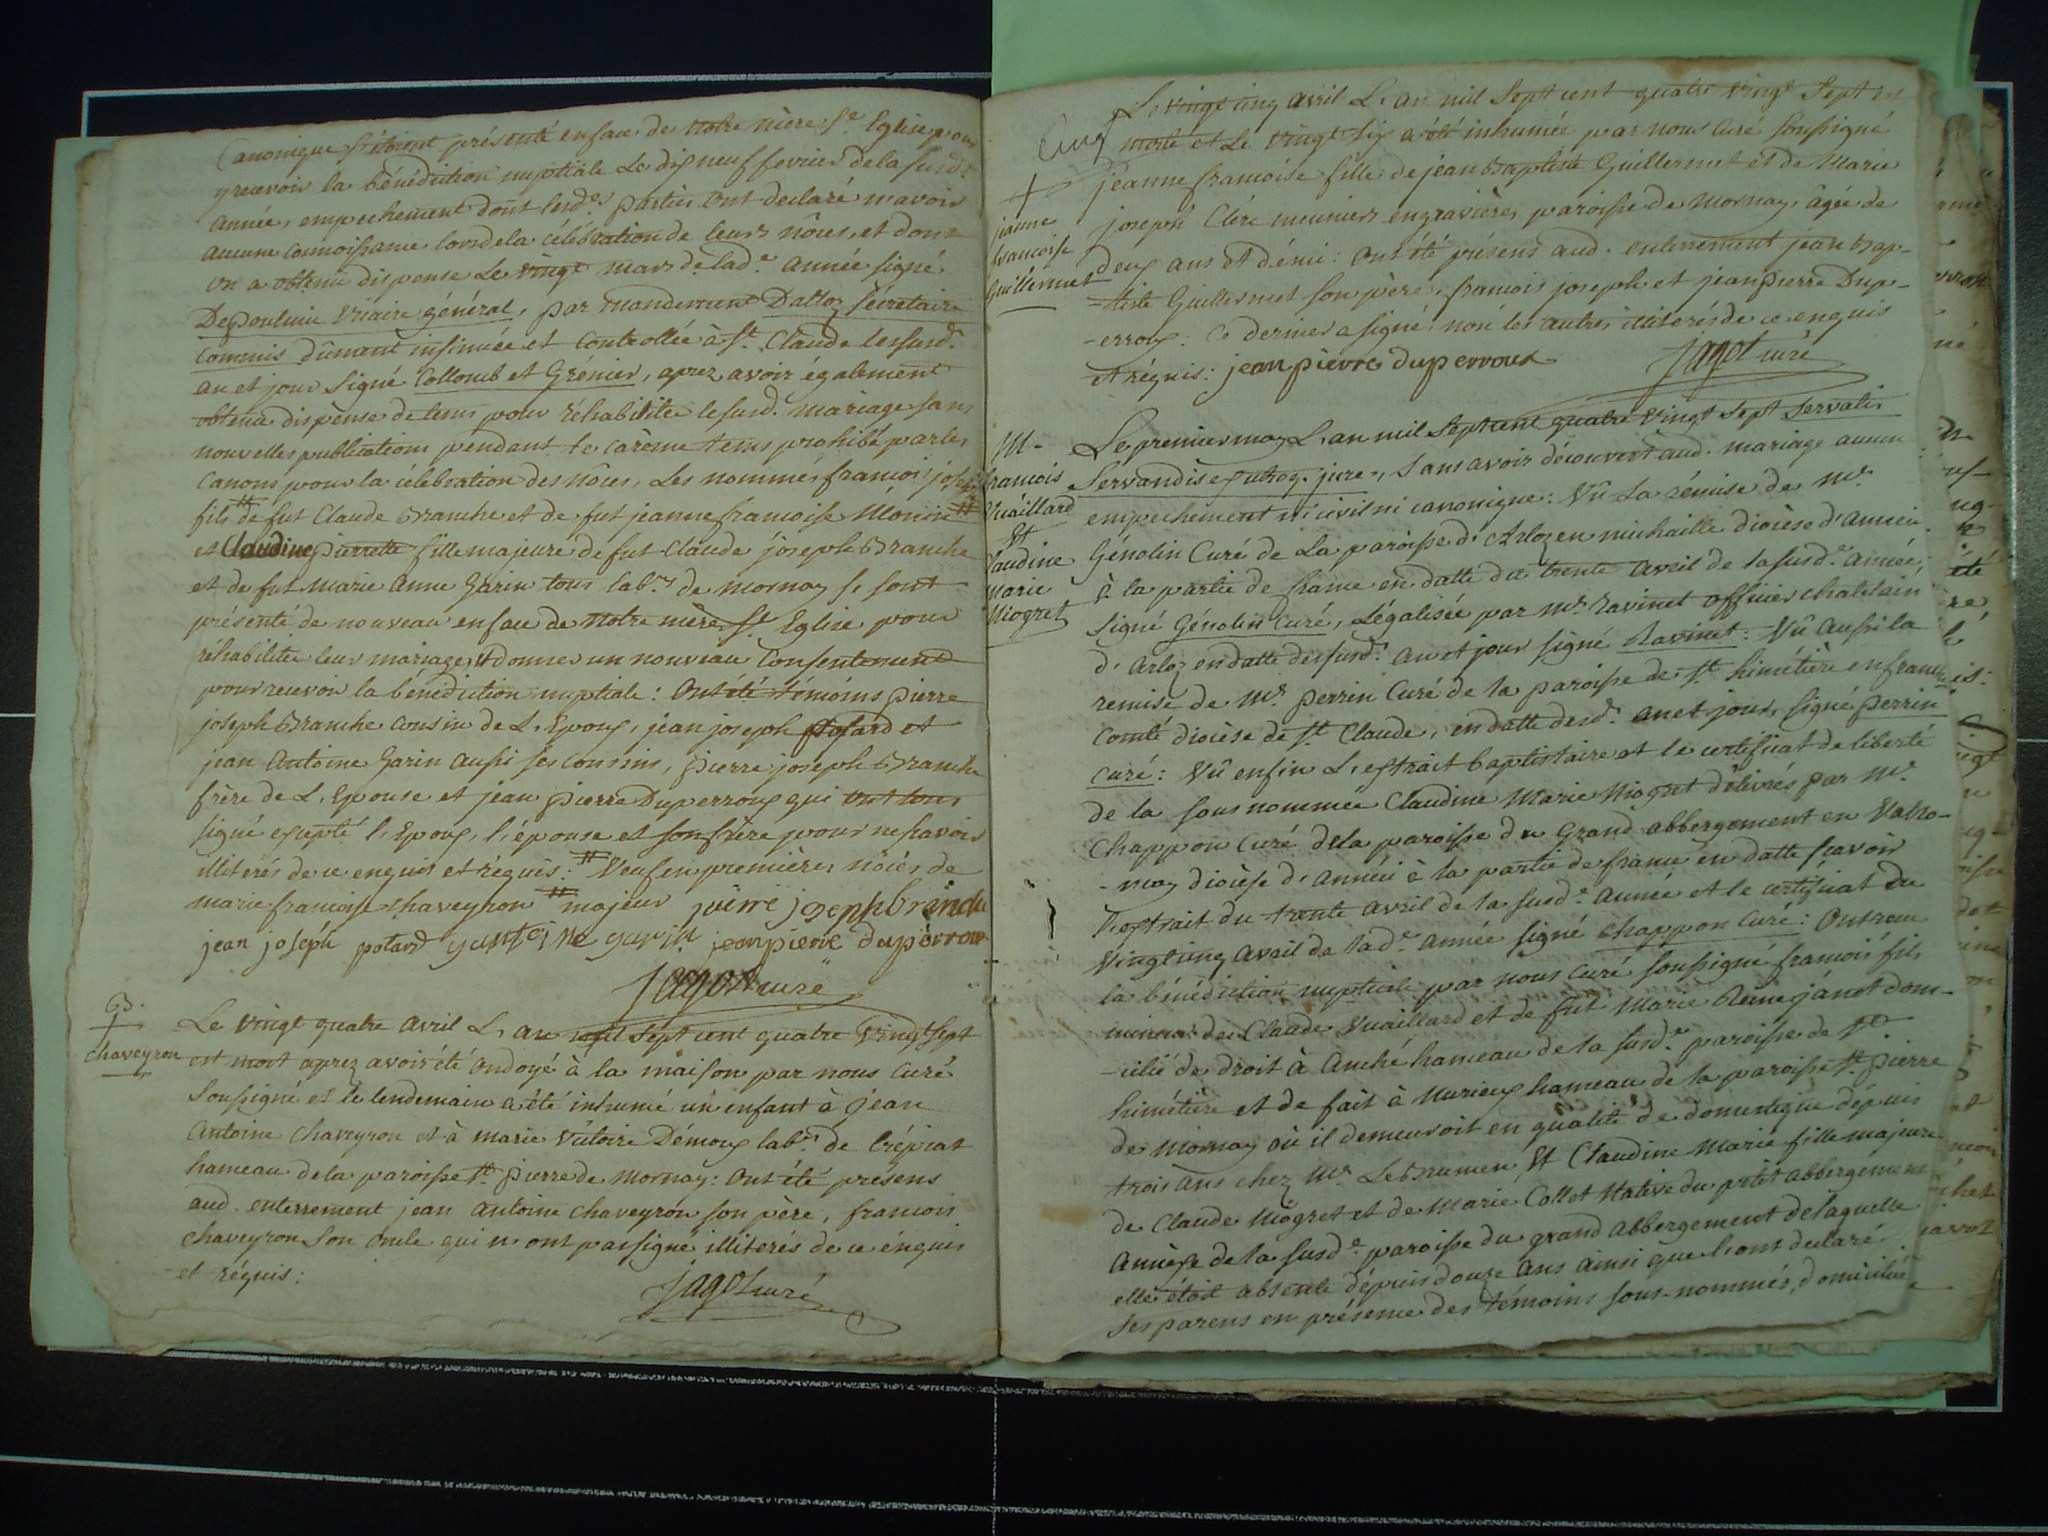 Canonique s'étoient présenté en face de notre mère Ste Eglise pour
y recevoir la bénédiction nuptiale Le dix neuf fevrier de la susde
année, empechement dont lesdes parties ont declaré n'avoir
aucune connoissance lors de la célébration de leurs nôces, et dont
on a obtenu dispense Le vingt mars de lade année signé
général, par mandement secrétaire
commis dûment insinuée et controllée à St. Claude les susd.
an et jour signé Collomb et Grénier, aprez avoir également
obtenu dispense de tems pour réhabiliter le susd. mariage sans
nouvelles publications pendant le carème tems prohibé par les
canons pour la célébration des nôces, Les nommés francois joseph
fils # de fut Claude Branche et de fut jeanne francoise Monin #
et Claudine pierrette fille majeure de fut Claude joseph Branche
et de fut Marie anne Garin tous labrs de mornay se sont
présenté de nouveau en face de notre mère Ste Eglise pour
réhabiliter leur mariage, et donner un nouveau Consentement
pour recevoir la bénédiction nuptiale : Ont été témoins pierre
joseph Branche cousin de L'Epoux, jean joseph potard et
jean Antoine Garin aussi ses cousins, pierre joseph Branche
frère de L'Epouse et jean pierre Duperroux qui ont tous
signé excepté l'Epoux, l'épouse et son frère pour ne scavoir
illiterés de ce enquis et réquis : # Veuf en premières nôces de
marie francoise chaveyron # majeur pierre joseph branche
jean joseph potard jantoine garin jean pierre duperroux
Jagot curé
B.
+
chaveyron
Le vingt quatre avril L'an mil sept cent quatre vingt sept
est mort aprez avoir été ondoyé à la maison par nous Curé
soussigné et le lendemain a été inhumé un enfant à jean
antoine chaveyron et à marie Victoire Démoux labrs de Crépiat
hameau de la paroisse St. pierre de mornay : Ont été présens
aud. enterrement jean antoine chaveyron son père, francois
chaveyron son oncle qui n'ont pas signé illiterés de ce énquis
et réquis :
Jagot curé
+
jeanne
francoise
Guillermet
Le vingt cinq avril L'an mil sept cent quatre vingt sept est
morte et Le vingt six a été inhumée par nous Curé soussigné
jéanne francoise fille de jean baptiste Guillermet et de Marie
joseph Clerc meunier en gravières paroisse de mornay, âgée de
deux ans et démi : Ont été présens aud. enterrement jean bap-
-tiste Guillermet son père, francois joseph et jean pierre Dupe-
-erroux : Ce dernier a signé, non les autres illiterés de ce enquis
et réquis : jean pierre duperroux
Jagot curé
M.
francois
Vuaillard
Et
Claudine
Marie
Niogret
Le premier may L'an mil sept cent quatre vingt sept Servatis
Servandis jure, sans avoir découvert aud. mariage aucun
empechement ni civil ni canonique : Vû La rémise de Mr.
Génolin Curé de La paroisse d'Arloz en michaille diocèse d'Anneci
à la partie de france en datte du trente avril de la susde année,
signé Génolin Curé, Légalisée par Mr. Ravinet officier chatelain
d'Arloz en datte des susds. an et jour signé Ravinet : Vû aussi la
remise de Mr. perrin Curé de la paroisse de St. himétière en franche
comté diocèse de St. Claude, en datte desds. an et jour, signé perrin
curé : Vû enfin L'extrait baptistaire et le certificat de liberté
de la sous nommée Claudine Marie Niogret délivrés par Mr.
Chappon curé de la paroisse du Grand abbergement en Valro-
-may diocèse d'Anneci à la partie de france en datte scavoir
L'extrait du trente avril de la susde année et le certificat du
vingt cinq avril de lade année signé Chappon Curé : Ont recu
la bénédiction nuptiale par nous curé soussigné francois fils
mineur de Claude Vuaillard et de fut Marie Reine jánet dom-
-icilié de droit à Anché hameau de la susde paroisse de St.
himétière et de fait à Nurieux hameau de la paroisse St. pierre
de Mornay où il demeuroit en qualité de domestique dépuis
trois ans chez Mr. Lebrumen Et Claudine Marie fille majeure
de Claude Niogret et de Marie Collet Native du petit abbergement
Annèxe de la susde paroisse du grand abbergement de laquelle
elle étoit absente dépuis douze ans ainsi que l'ont declaré
ses parens en présence des témoins sous-nommés, domiciliée